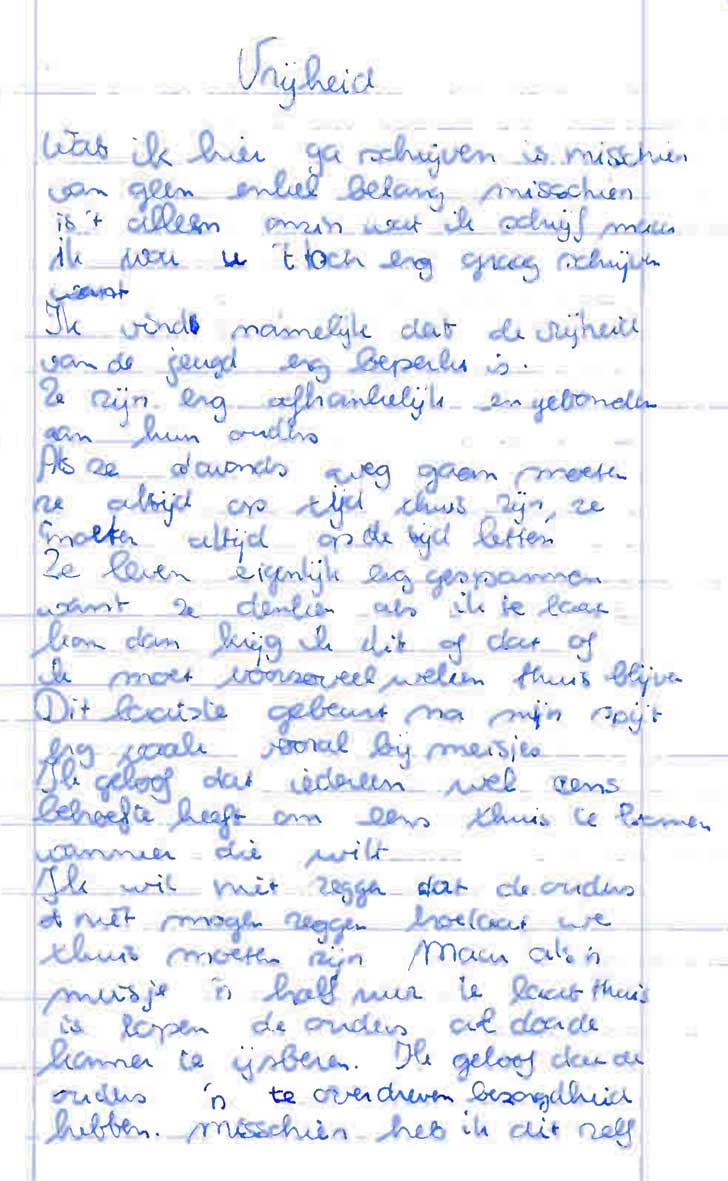 Vrijheid
Wat ik hier ga schrijven is misschien
van geen enkel belang misschien
is 't alleen onzin wat ik schrijf maar
ik wou u 't toch erg graag schrijven
want
Ik vind namelijk dat de vrijheid
van de jeugd erg beperkt is.
Ze zijn erg afhankelijk en gebonden
aan hun ouders
Als ze s'avonds weg gaan moeten
ze altijd op tijd thuis zijn, ze
moeten altijd op de tijd letten
Ze leven eigenlijk erg gespannen
want ze denken als ik te laat
kom dan krijg ik dit of dat of
ik moet voorzoveel weken thuis blijven
Dit laatste gebeurt na mijn spijt
erg vaak vooral bij meisjes
Ik geloof dat iedereen wel eens
behoefte heeft om eens thuis te komen
wanneer die wilt
Ik wil niet zeggen dat de ouders
niet mogen zeggen hoelaat we
thuis moeten zijn Maar als 'n
meisje 'n half uur te laat thuis
is lopen de ouders al door de
kamer te ijsberen. Ik geloof dat de
ouders 'n te overdreven bezorgdheid
hebben. Misschien heb ik dit zelf